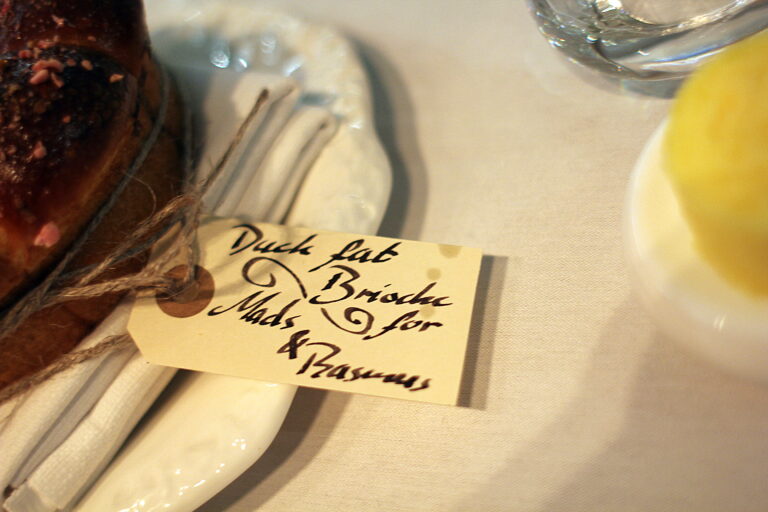 Duck fat
Brioche
Mads for
& Rasmus